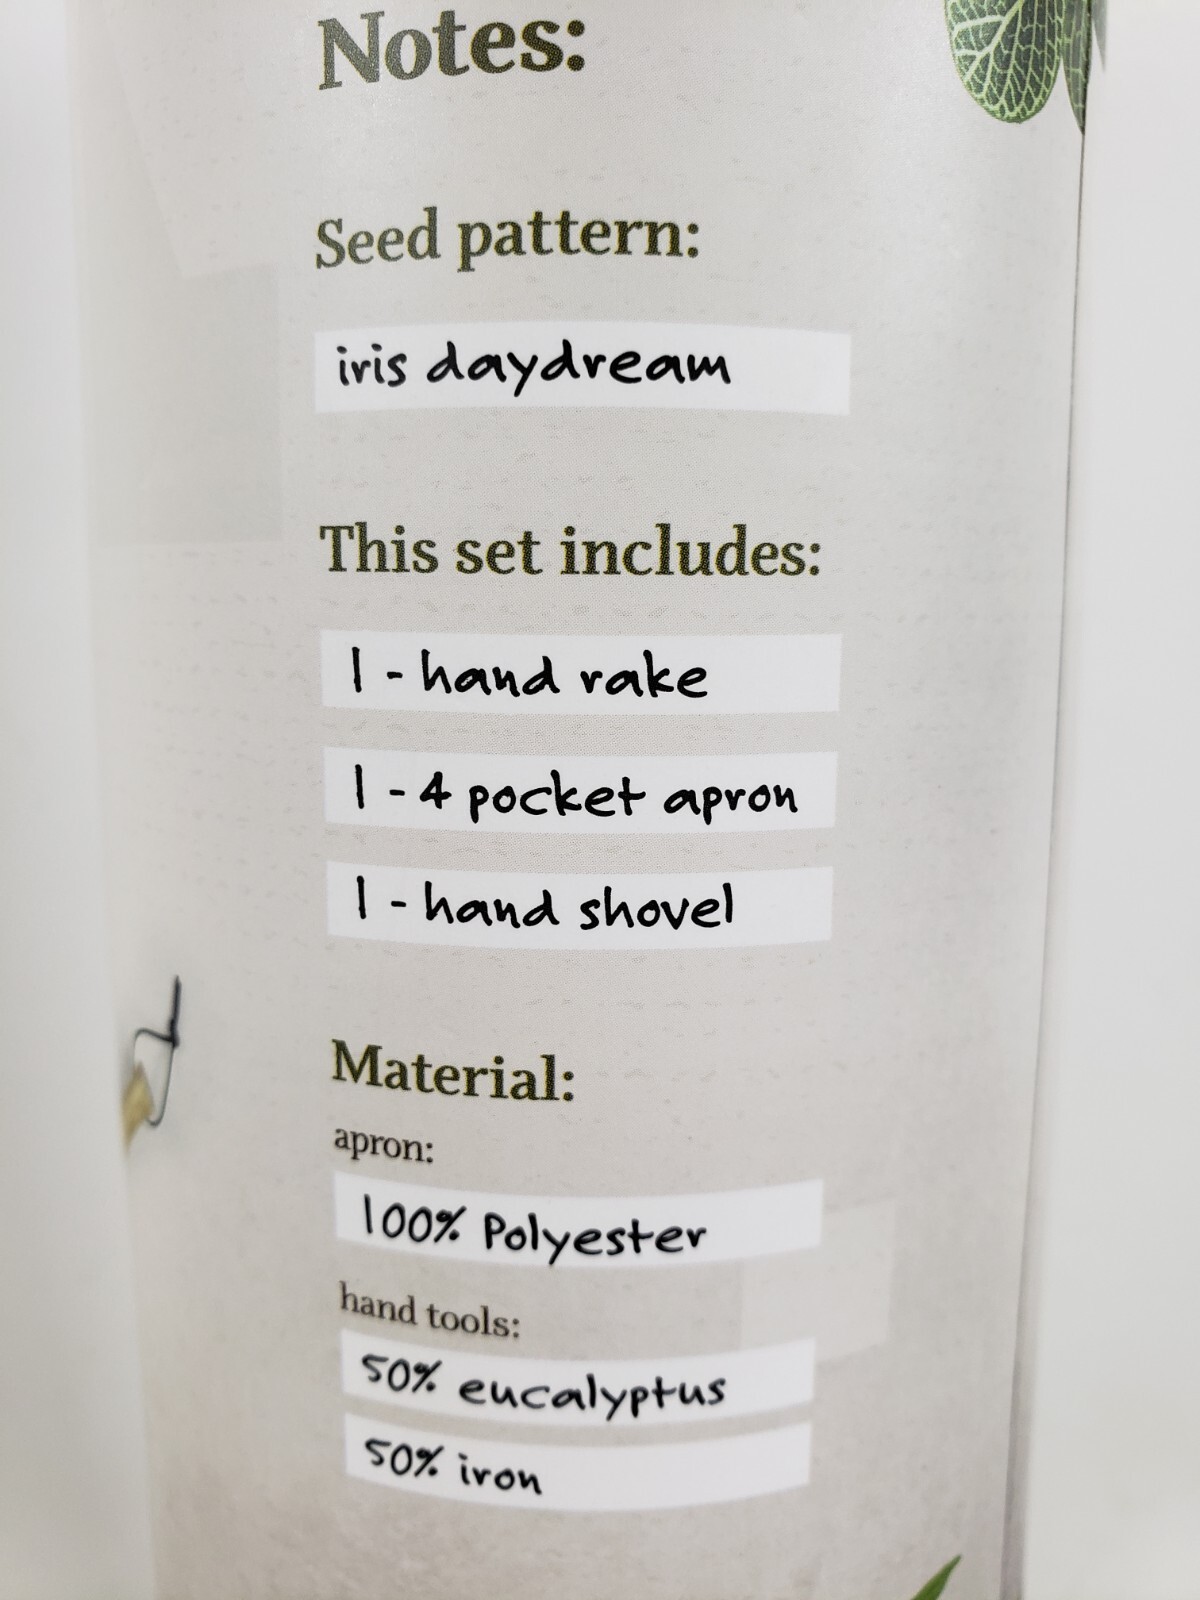 Notes:
Seed pattern:
iris daydream
This set includes:
1 - hand rake
1 - 4 pocket apron
1 - hand shovel
Material:
apron:
100% Polyester
hand tools:
50% eucalyptus
50% iron